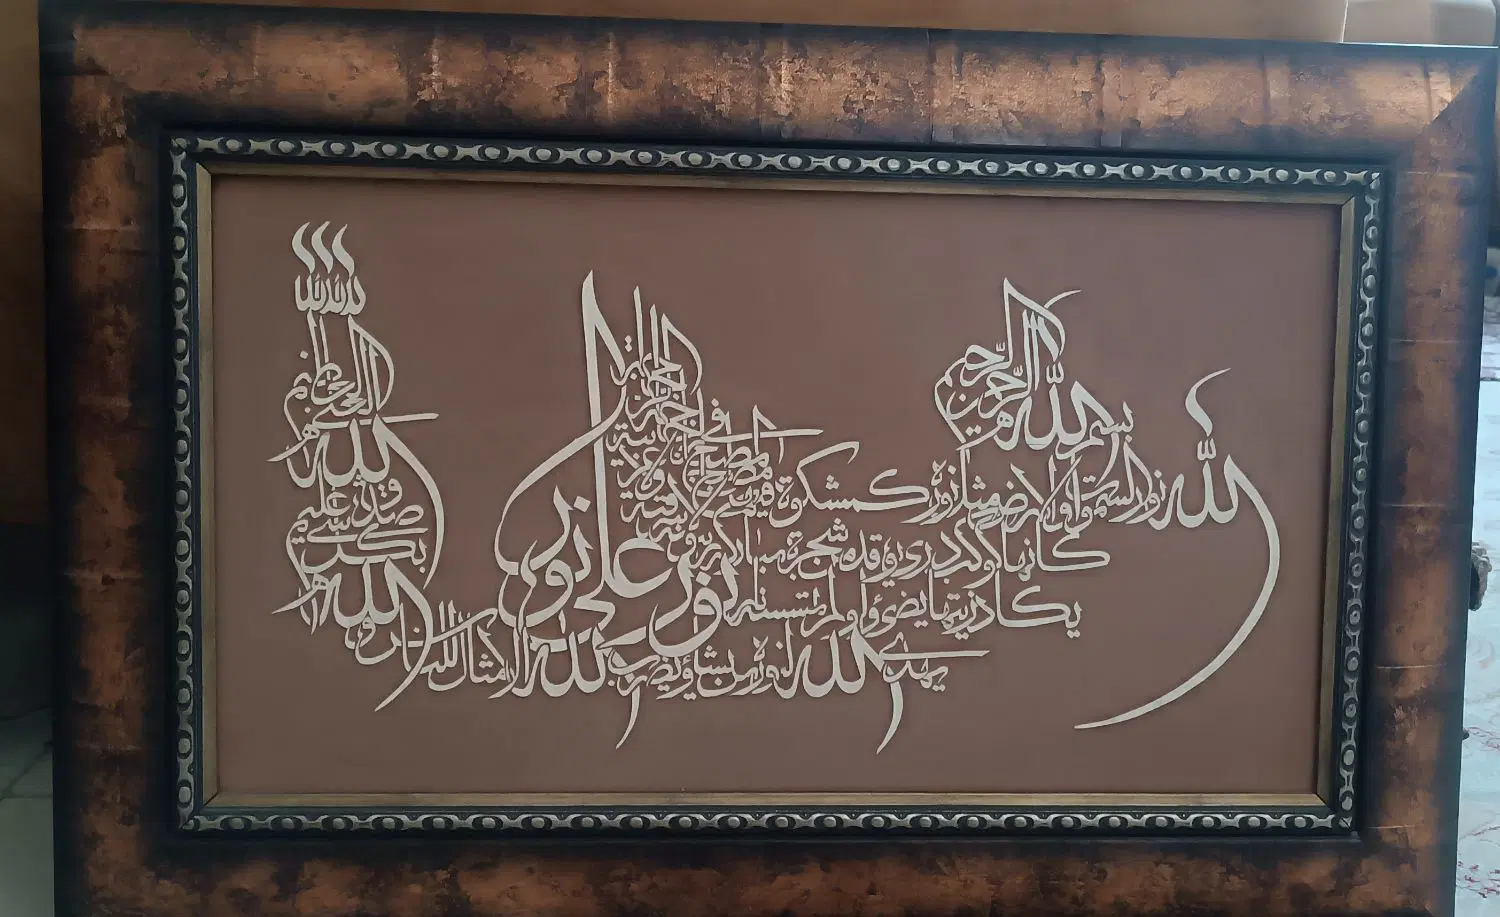 بسم الله الرحمن الرحيم
الله نور السموات والارض مثل نوره كمشكوة فيها مصباح المصباح في زجاجة الزجاجة
كانها كوكب دري يوقد من شجرة مباركة زيتونة
يكاد زيتها يضيء ولو لم تمسسه نار
نور على نور
يهدي الله لنوره من يشاء ويضرب الله الامثال للناس و
الله بكل شيء عليم
صدق الله العلي العظيم